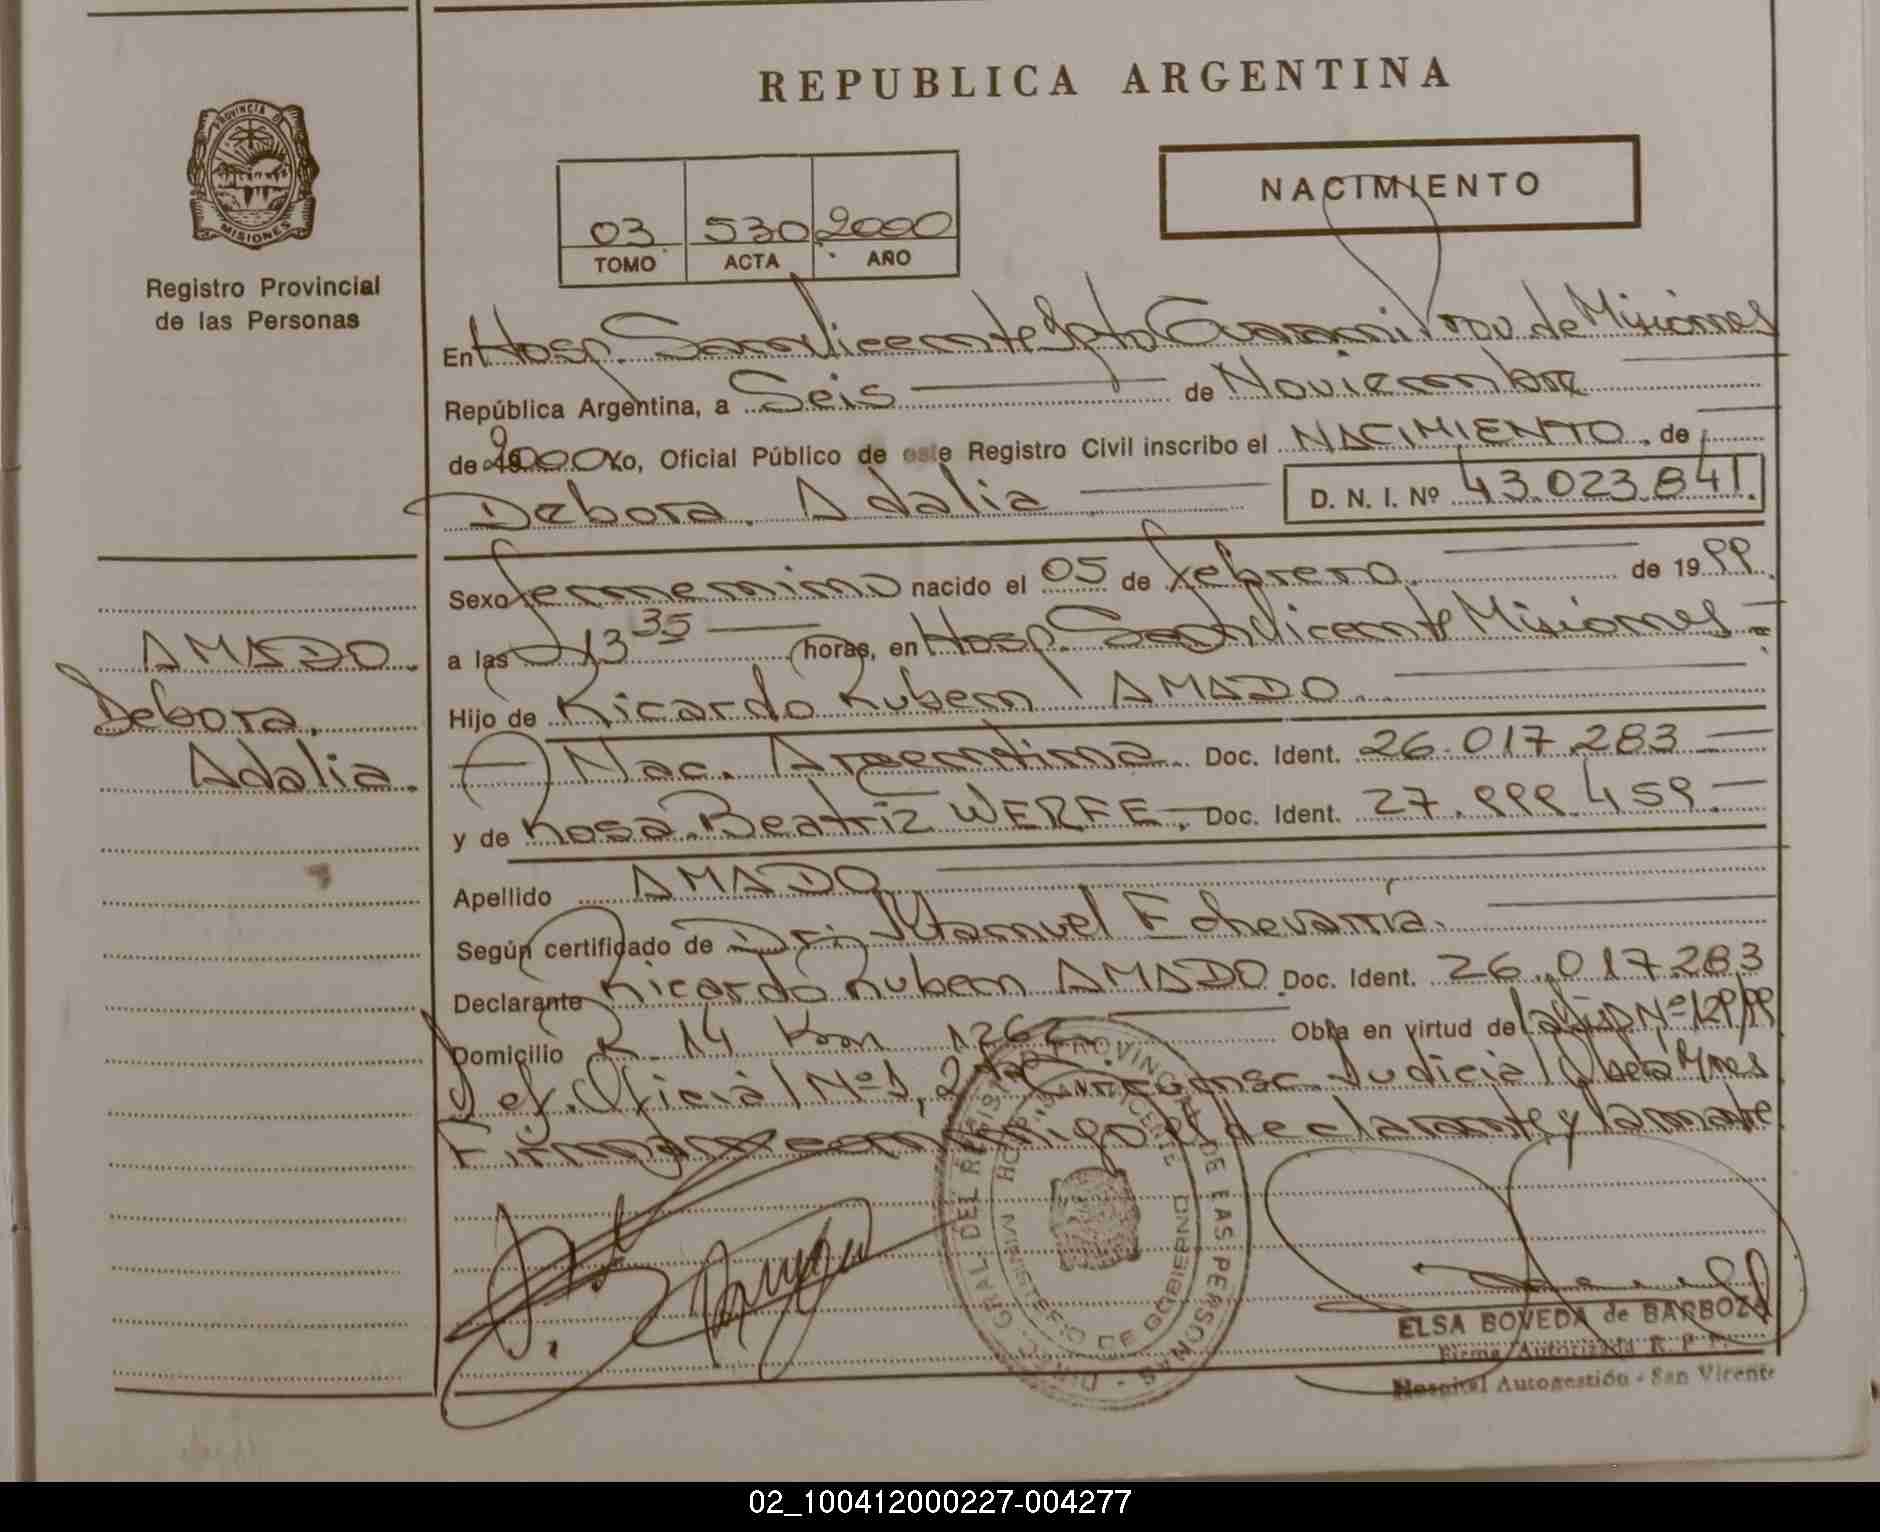 REPUBLICA ARGENTINA
PROVINCIA DE
MISIONES
Registro Provincial
de las Personas
NACIMIENTO
03 530 2000
TOMO ACTA AÑO
En Hosp. San Vicente Dpto Guaraní Prov. de Misiones
República Argentina, a Seis de Noviembre
de 2000 Yo, Oficial Público de este Registro Civil inscribo el NACIMIENTO, de
Debora Adalia D. N. I. Nº 43.023.841.
Sexo femenino nacido el 05 de febrero de 1999
a las 13 35 horas, en Hosp. San Vicente Misiones
Hijo de Ricardo Ruben AMADO
Nac. Argentina. Doc. Ident. 26.017.283
y de Rosa Beatriz WERFE, Doc. Ident. 27.999.459
Apellido AMADO
Según certificado de Dr. Manuel Echevarría.
Declarante Ricardo Ruben AMADO Doc. Ident. 26.017.283
Domicilio R. 14 Km 1262 Obra en virtud de Nº 129/99
Def. Oficial Nº 1, 2da Circunsc. Judicial Oberá Mnes
Firman conmigo el declarante y la madre
AMADO
Debora
Adalia.
DIREC. GRAL. DEL REGISTRO PROVINCIAL DE LAS PERSONAS
HOSPITAL SAN VICENTE
MINISTERIO DE GOBIERNO
ELSA BOVEDA de BARBOZA
Firma Autorizada R. P. P.
Hospital Autogestión - San Vicente
02_100412000227-004277